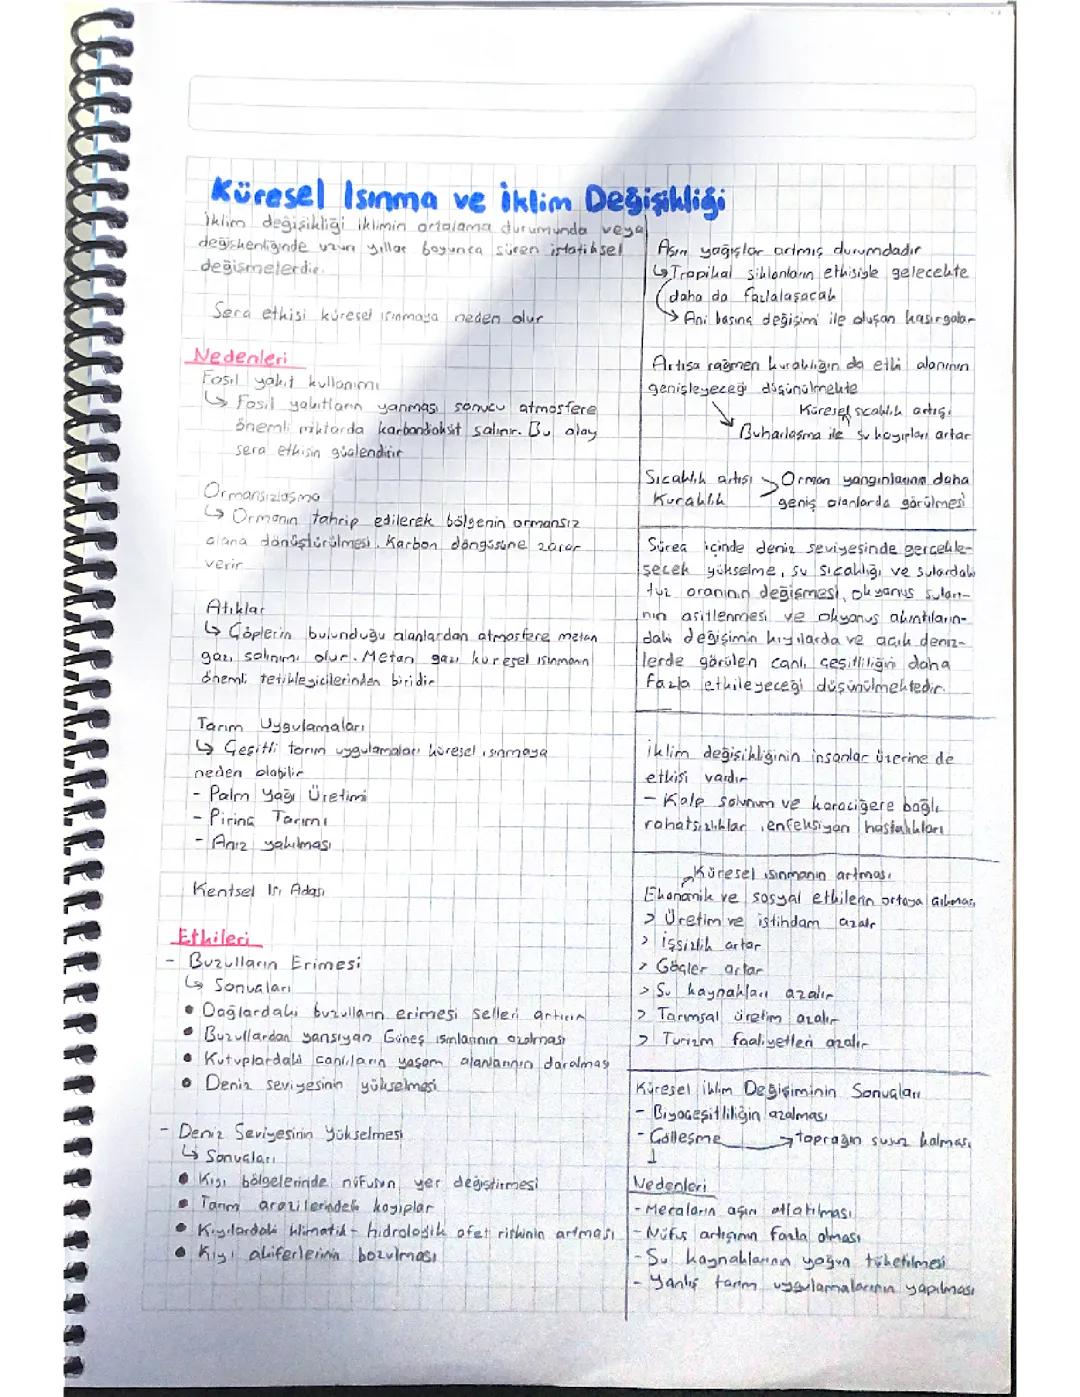 Küresel Isınma ve İklim Değişikliği
İklim değişikliği iklimin ortalama durumunda veya
değişkenliğinde uzun yıllar boyunca süren istatiksel
değişmelerdir.
Sera etkisi küresel ısınmaya neden olur
Nedenleri
Fosil yakıt kullanımı
↳ Fosil yakıtların yanması sonucu atmosfere
önemli miktarda karbondioksit salınır. Bu olay
sera etkisin güçlendirir
Ormansızlaşma
↳ Ormanın tahrip edilerek bölgenin ormansız
alana dönüştürülmesi. Karbon döngüsüne zarar
verir
Atıklar
↳ Çöplerin bulunduğu alanlardan atmosfere metan
gazı salınımı olur. Metan gazı küresel ısınmanın
önemli tetikleyicilerinden biridir
Tarım Uygulamaları
↳ Çeşitli tarım uygulamaları küresel ısınmaya
neden olabilir
- Palm Yağı Üretimi
- Pirinç Tarımı
- Anız yakılması
Kentsel Isı Adası
Etkileri
- Buzulların Erimesi
↳ Sonuçları
• Dağlardaki buzulların erimesi selleri artırır
• Buzullardan yansıyan Güneş ışınlarının azalması
• Kutuplardaki canlıların yaşam alanlarının daralması
• Deniz seviyesinin yükselmesi
- Deniz Seviyesinin Yükselmesi
↳ Sonuçları
• Kıyı bölgelerinde nüfusun yer değiştirmesi
• Tarım arazilerindek kayıplar
• Kıyılardaki klimatik-hidrolojik afet riskinin artması
• Kıyı akiferlerinin bozulması
Aşırı yağışlar artmış durumdadır
↳ Tropikal siklonların etkisiyle gelecekte
daha da fazlalaşacak
→ Ani basınç değişimi ile oluşan kasırgalar
Artışa rağmen kuraklığın da etki alanının
genişleyeceği düşünülmekte
Küresel sıcaklık artışı
Buharlaşma ile su kayıpları artar
Sıcaklık artışı → Orman yangınlarının daha
Kuraklık geniş alanlarda görülmesi
Süreç içinde deniz seviyesinde gerçekle-
şecek yükselme, su sıcaklığı ve sulardaki
tuz oranının değişmesi, okyanus suları-
nın asitlenmesi ve okyanus akıntıların-
daki değişimin kıyılarda ve açık deniz-
lerde görülen canlı çeşitliliğini daha
fazla etkileyeceği düşünülmektedir.
İklim değişikliğinin insanlar üzerine de
etkisi vardır
- Kalp solunum ve karaciğere bağlı
rahatsızlıklar, enfeksiyon hastalıkları
Küresel ısınmanın artması
Ekonomik ve sosyal etkilerin ortaya çıkması
> Üretim ve istihdam azalır
> İşsizlik artar
> Göçler artar
> Su kaynakları azalır
> Tarımsal üretim azalır
> Turizm faaliyetleri azalır
Küresel iklim Değişiminin Sonuçları
- Biyoçeşitliliğin azalması
- Çölleşme → toprağın susuz kalması
↓
Nedenleri
- Meraların aşırı otlatılması
- Nüfus artışının fazla olması
- Su kaynaklarının yoğun tüketilmesi
- Yanlış tarım uygulamalarının yapılması